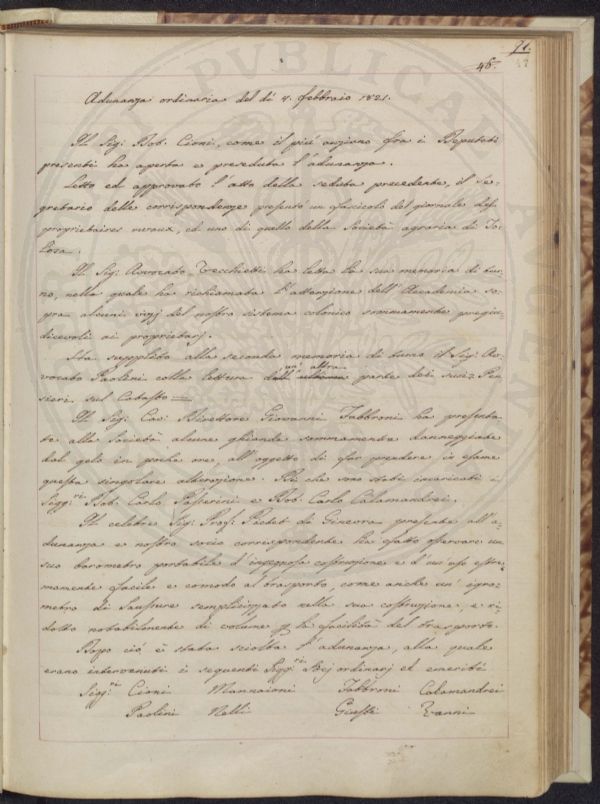 71.
46.
Adunanza ordinaria del dì 4. febbraio 1821.
Il Sig: Dot: Cioni, come il più anziano fra i Deputati
presenti ha aperta e preseduta l'adunanza.
Letto ed approvato l'atto della seduta precedente, il Se-
gretario delle corrispondenze presentò un fascicolo del giornale des
propriétaires ruraux, ed uno di quello della Società agraria di To-
losa.
Il Sig: Avvocato Tecchietti ha letta la sua memoria di tur-
no, nella quale ha richiamata l'attenzione dell'Accademia so-
pra alcuni vizj del nostro sistema colonico sommamente pregiu-
dicevoli ai proprietarj.
Ha supplito alla seconda memoria di turno il Sig: Av-
vocato Paolini colla lettura dell' un' altra parte dei suoi Pen-
sieri sul Catasto =
Il Sig: Cav: Direttore Giovanni Fabbroni ha presenta-
te alla Società alcune ghiande sommamente danneggiate
dal gelo in poche ore, all'oggetto di far prendere in esame
questa singolare alterazione. Di che sono stati incaricati i
Sigg:ri Dot: Carlo Passerini e Dot: Carlo Calamandrei.
Il celebre Sig: Prof: Pictet di Ginevra presente all'a-
dunanza e nostro socio corrispondente ha fatto osservare un
suo barometro portabile d'ingegnosa costruzione e d'un uso estre-
mamente facile e comodo al trasporto, come anche un' igro-
metro di Saussure semplicizzato nella sua costruzione, e ri-
dotto notabilmente di volume p la facilità del trasporto.
Dopo ciò è stata sciolta l'adunanza, alla quale
erano intervenuti i seguenti Sigg:ri Socj ordinarj ed emeriti
Sigg:ri Cioni Mannaioni Fabbroni Calamandrei
Paolini Nelli Giusti Vanni